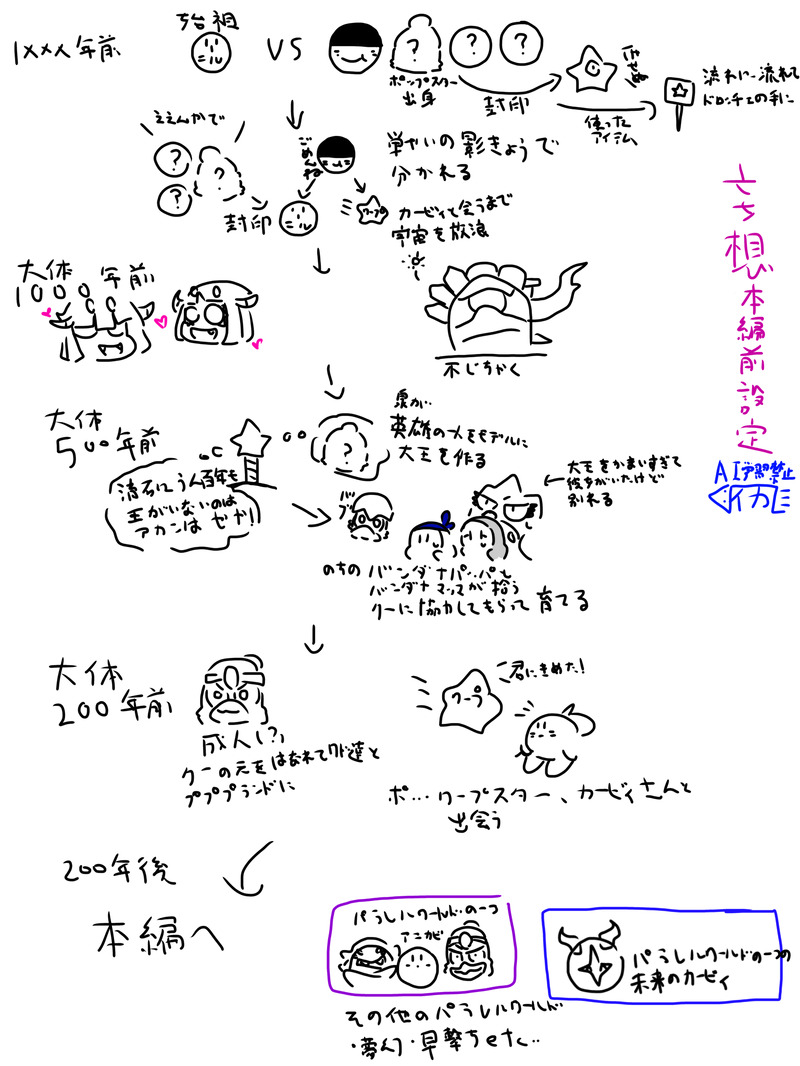 1×××年前
始祖
ニル
VS
?
?
?
ポップスター
出身
封印
使った
アイテム
流れに流れて
ドロッチェの手に
ええんかで
?
?
?
封印
ニル
ごめんね
単せいの影きょうで
分かれる
ワープ
カービィと会うまで
宇宙を放浪
大体
1000年前
不じちゃく
大体
500年前
流石にうん百年も
王がいないのは
アカンはゼ!!
?
英雄の〆をモデルに
大王を作る
大王をかまいすぎて
別れる
のちの
バンダナパッパと
バンダナマッマが拾う
クーに協力してもらって育てる
大体
200年前
成人(?)
クーの元をはなれてワド達と
プププランドに
ワープ
君にきめた!
ポ…ワープスター、カービィさんと
出会う
200年後
本編へ
パラレルワールドの一つ
アニカビ
パラレルワールドの一つの
未来のカービィ
その他のパラレルワールド
・夢幻・早撃ちetc..
さち想本編前設定
AI学習禁止
イカ